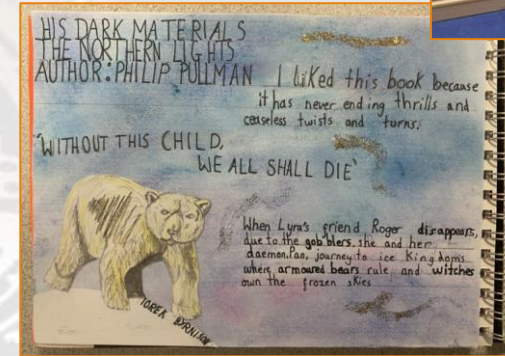 HIS DARK MATERIALS
THE NORTHERN LIGHTS
AUTHOR: PHILIP PULLMAN
I liked this book because
it has never ending thrills and
ceaseless twists and turns.
'WITHOUT THIS CHILD,
WE ALL SHALL DIE'
When Lyra's friend Roger disappears,
due to the gobblers, she and her
daemon, Pan, journey to ice Kingdoms
where armoured bears rule, and witches
own the frozen skies
IOREK BYRNISON